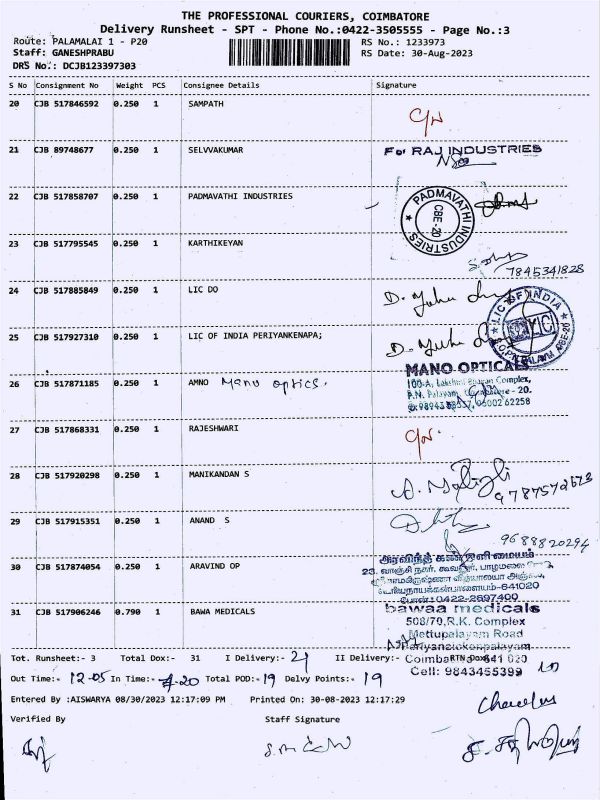 THE PROFESSIONAL COURIERS, COIMBATORE
Delivery Runsheet - SPT - Phone No.:0422-3505555 - Page No.:3
Route: PALAMALAI 1 - P20 RS No.: 1233973
Staff: GANESHPRABU RS Date: 30-Aug-2023
DRS No.: DCJB123397303
S No Consignment No Weight PCS Consignee Details Signature
20 CJB 517846592 0.250 1 SAMPATH
21 CJB 89748677 0.250 1 SELVVAKUMAR For RAJ INDUSTRIES
22 CJB 517858707 0.250 1 PADMAVATHI INDUSTRIES PADMAVATHI INDUSTRIES CBE-20
23 CJB 517795545 0.250 1 KARTHIKEYAN
7845341828
24 CJB 517885849 0.250 1 LIC DO LIC OF INDIA
25 CJB 517927310 0.250 1 LIC OF INDIA PERIYANKENAPA;
26 CJB 517871185 0.250 1 AMNO Mano optics. MANO OPTICALS
100-A, Lakshmi Complex,
- 20.
62258
27 CJB 517868331 0.250 1 RAJESHWARI
28 CJB 517920298 0.250 1 MANIKANDAN S
9787572673
29 CJB 517915351 0.250 1 ANAND S
9688820294
30 CJB 517874054 0.250 1 ARAVIND OP அரவிந்த் கண் ஒளி மையம்
23, வாஞ்சி நகர்,
641020
0422-2697400
31 CJB 517906246 0.790 1 BAWA MEDICALS bawaa medicals
508/79,R.K. Complex
Mettupalayam Road
Periyanaickenpalayam
Tot. Runsheet:- 3 Total Dox:- 31 I Delivery:- 21 II Delivery:- Coimbatore 641 020
Out Time:- 12.05 In Time:- 4.20 Total POD:- 19 Delvy Points:- 19 Cell: 9843455399
Entered By :AISWARYA 08/30/2023 12:17:09 PM Printed On: 30-08-2023 12:17:29
Verified By Staff Signature